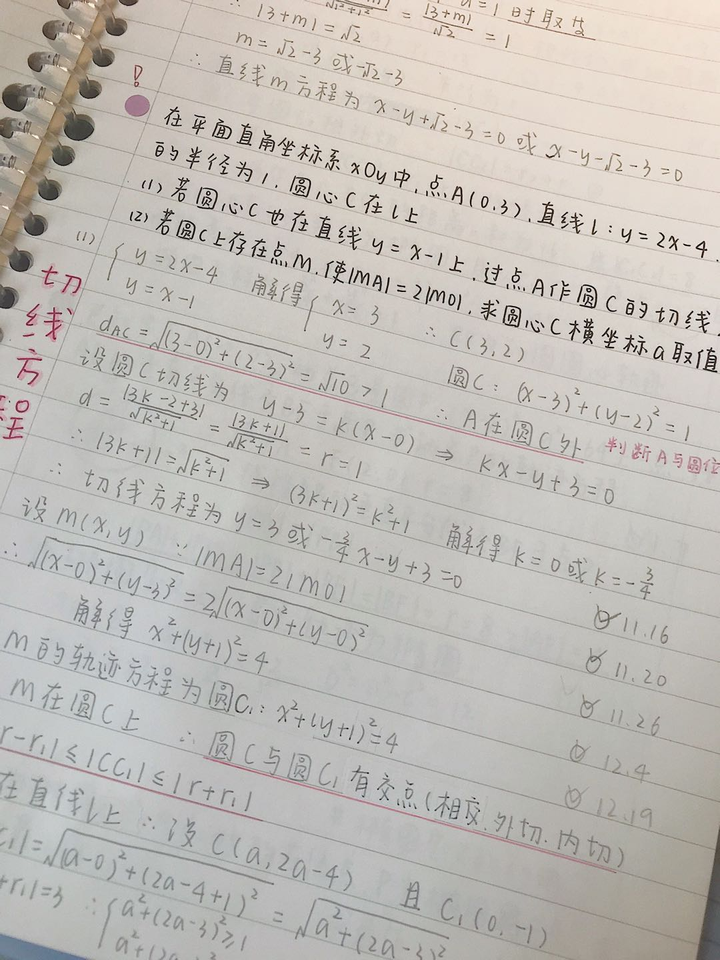 = |3+m|/√2 = 1
∴ |3+m|=√2
m=√2-3 或-√2-3
∴ 直线m方程为 x-y+√2-3=0 或 x-y-√2-3=0
!
在平面直角坐标系xOy中,点A(0,3),直线l:y=2x-4.
的半径为1.圆心C在l上
(1)若圆心C也在直线y=x-1上,过点A作圆C的切线
(2)若圆C上存在点M,使|MA|=2|MO|,求圆心C横坐标a取值
(1) { y=2x-4 解得 { x=3 ∴ C(3,2)
y=x-1 y=2 圆C:(x-3)²+(y-2)²=1
切线方程
d_AC=√(3-0)²+(2-3)²=√10>1 ∴ A在圆C外 判断A与圆位
设圆C切线为 y-3=k(x-0) ⇒ kx-y+3=0
d=|3k-2+3|/√k²+1=|3k+1|/√k²+1=r=1
∴ |3k+1|=√k²+1 ⇒ (3k+1)²=k²+1 解得k=0或k=-3/4
∴ 切线方程为y=3或-3/4x-y+3=0
设m(x,y) ∵|MA|=2|MO|
11.16
∴ √(x-0)²+(y-3)²=2√(x-0)²+(y-0)²
11.20
解得 x²+(y+1)²=4
11.26
m的轨迹方程为圆C₁:x²+(y+1)²=4
12.4
m在圆C上 ∴ 圆C与圆C₁有交点(相交.外切.内切)
12.19
r-r₁|≤|CC₁|≤|r+r₁|
在直线l上 ∴设C(a,2a-4) 且C₁(0,-1)
C₁|=√(a-0)²+(2a-4+1)²=√a²+(2a-3)²
+r₁|=3 ∴ { a²+(2a-3)²≥1